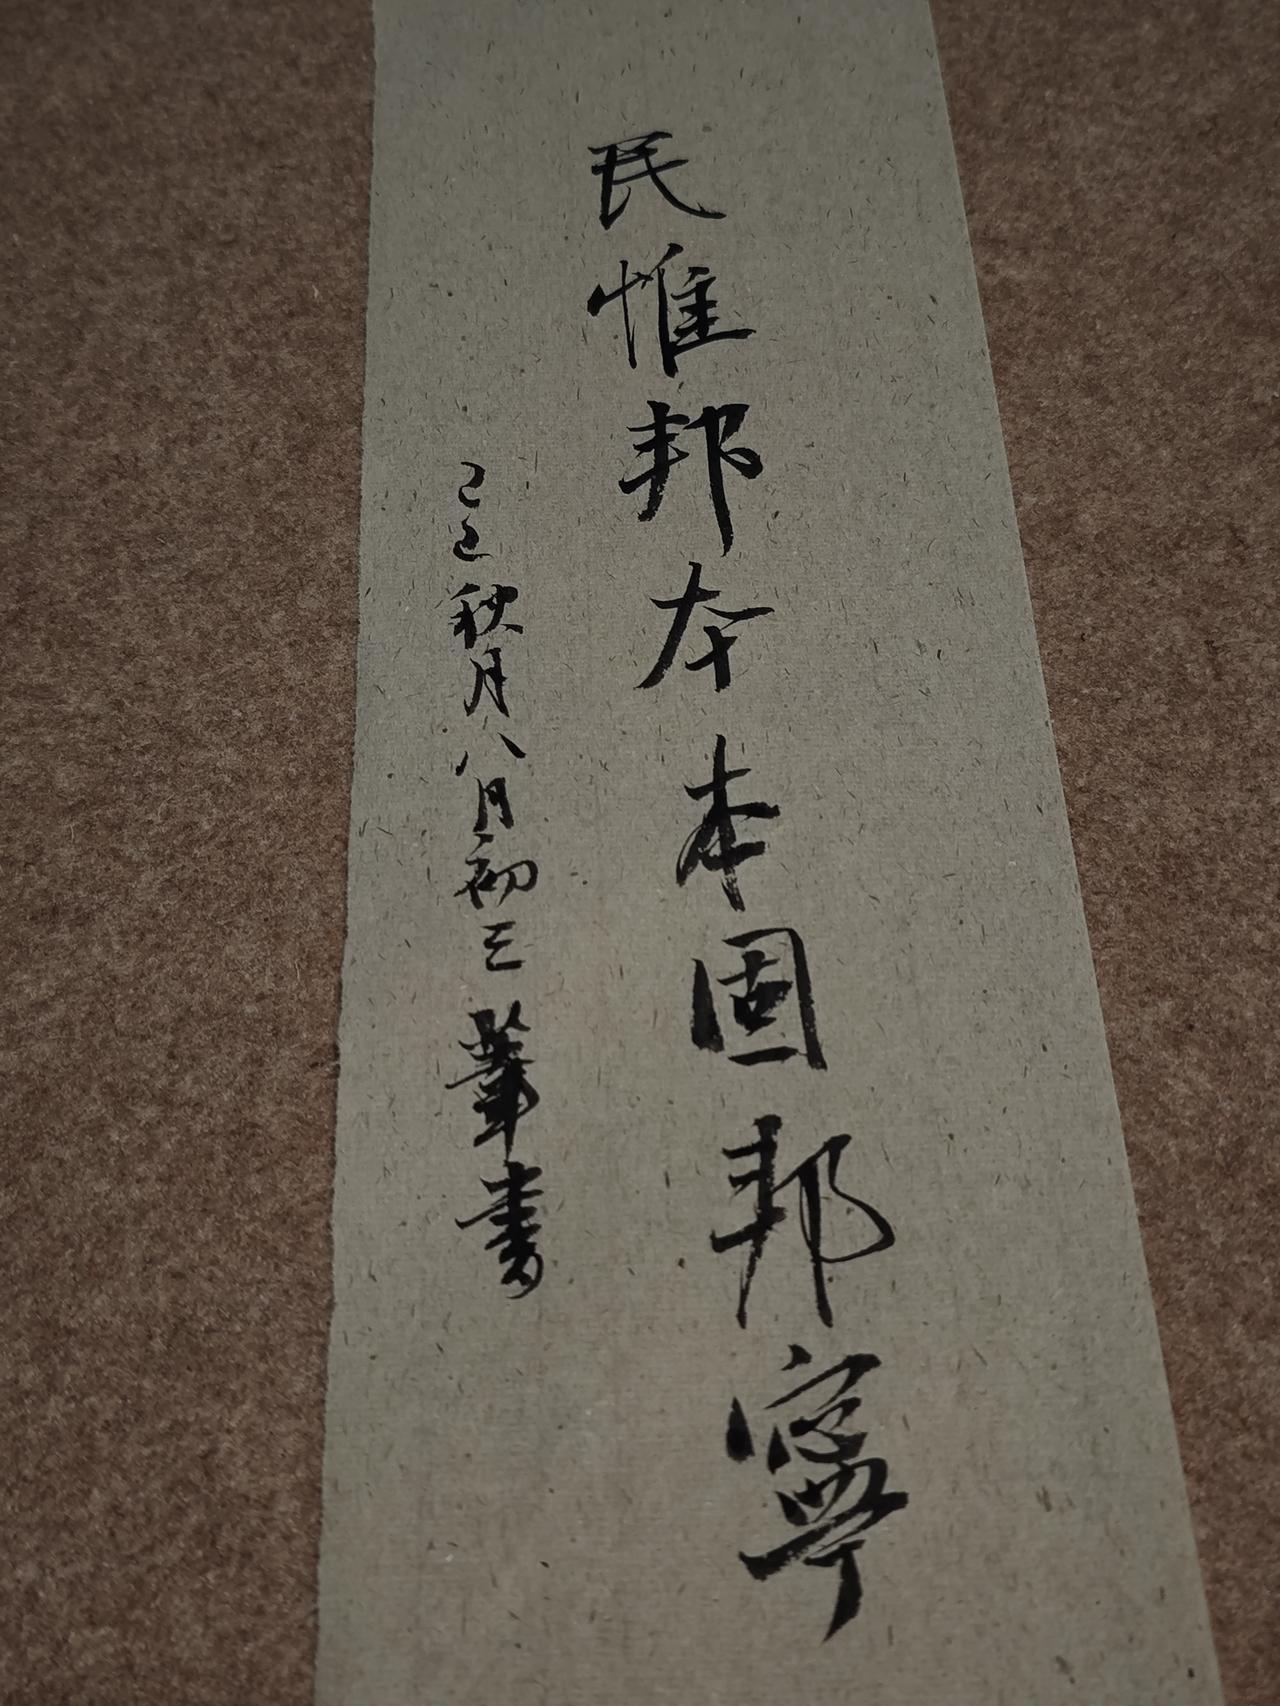 民惟邦本本固邦寧
乙巳秋月八月初三書